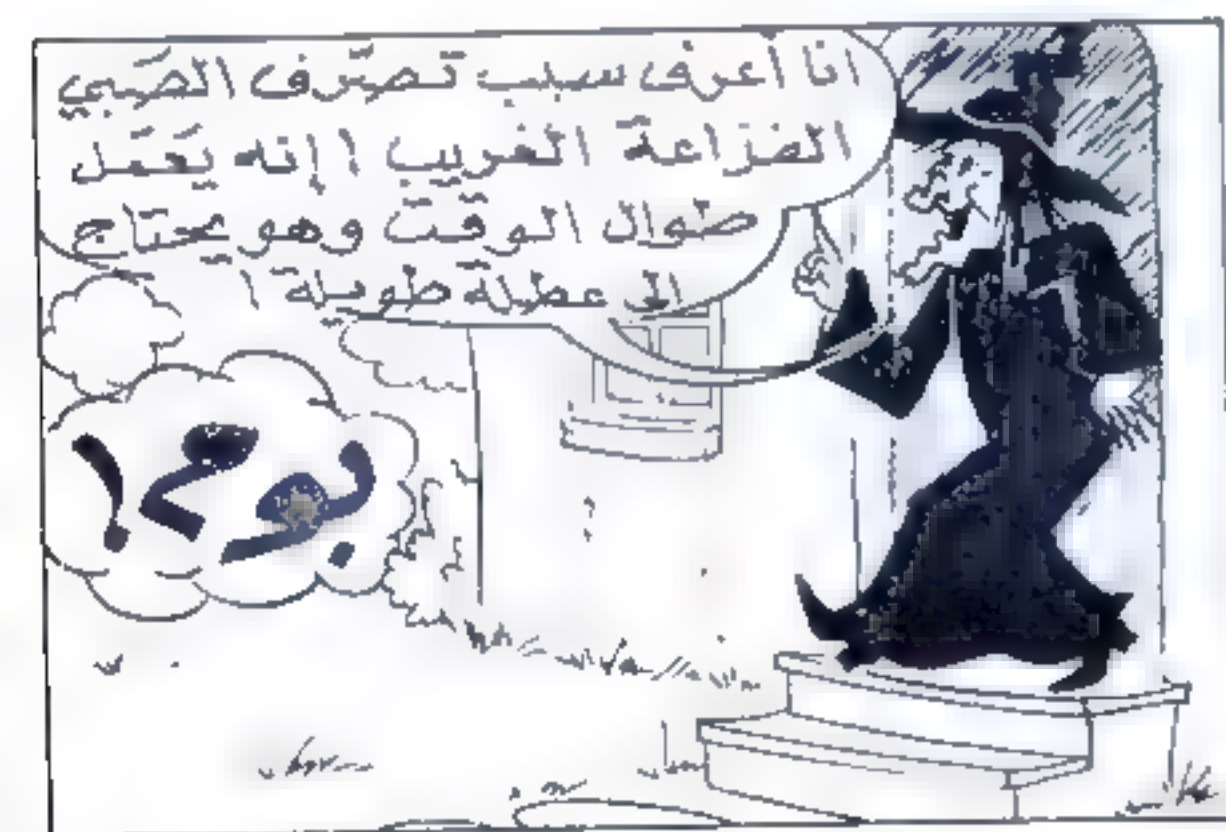 انا أعرف سبب تصرّف الصَبي
الفزاعة الغريب ! إنه يَعمَل
طوال الوقت وهو يحتاج
الى عطلة طويلة !
بوم !